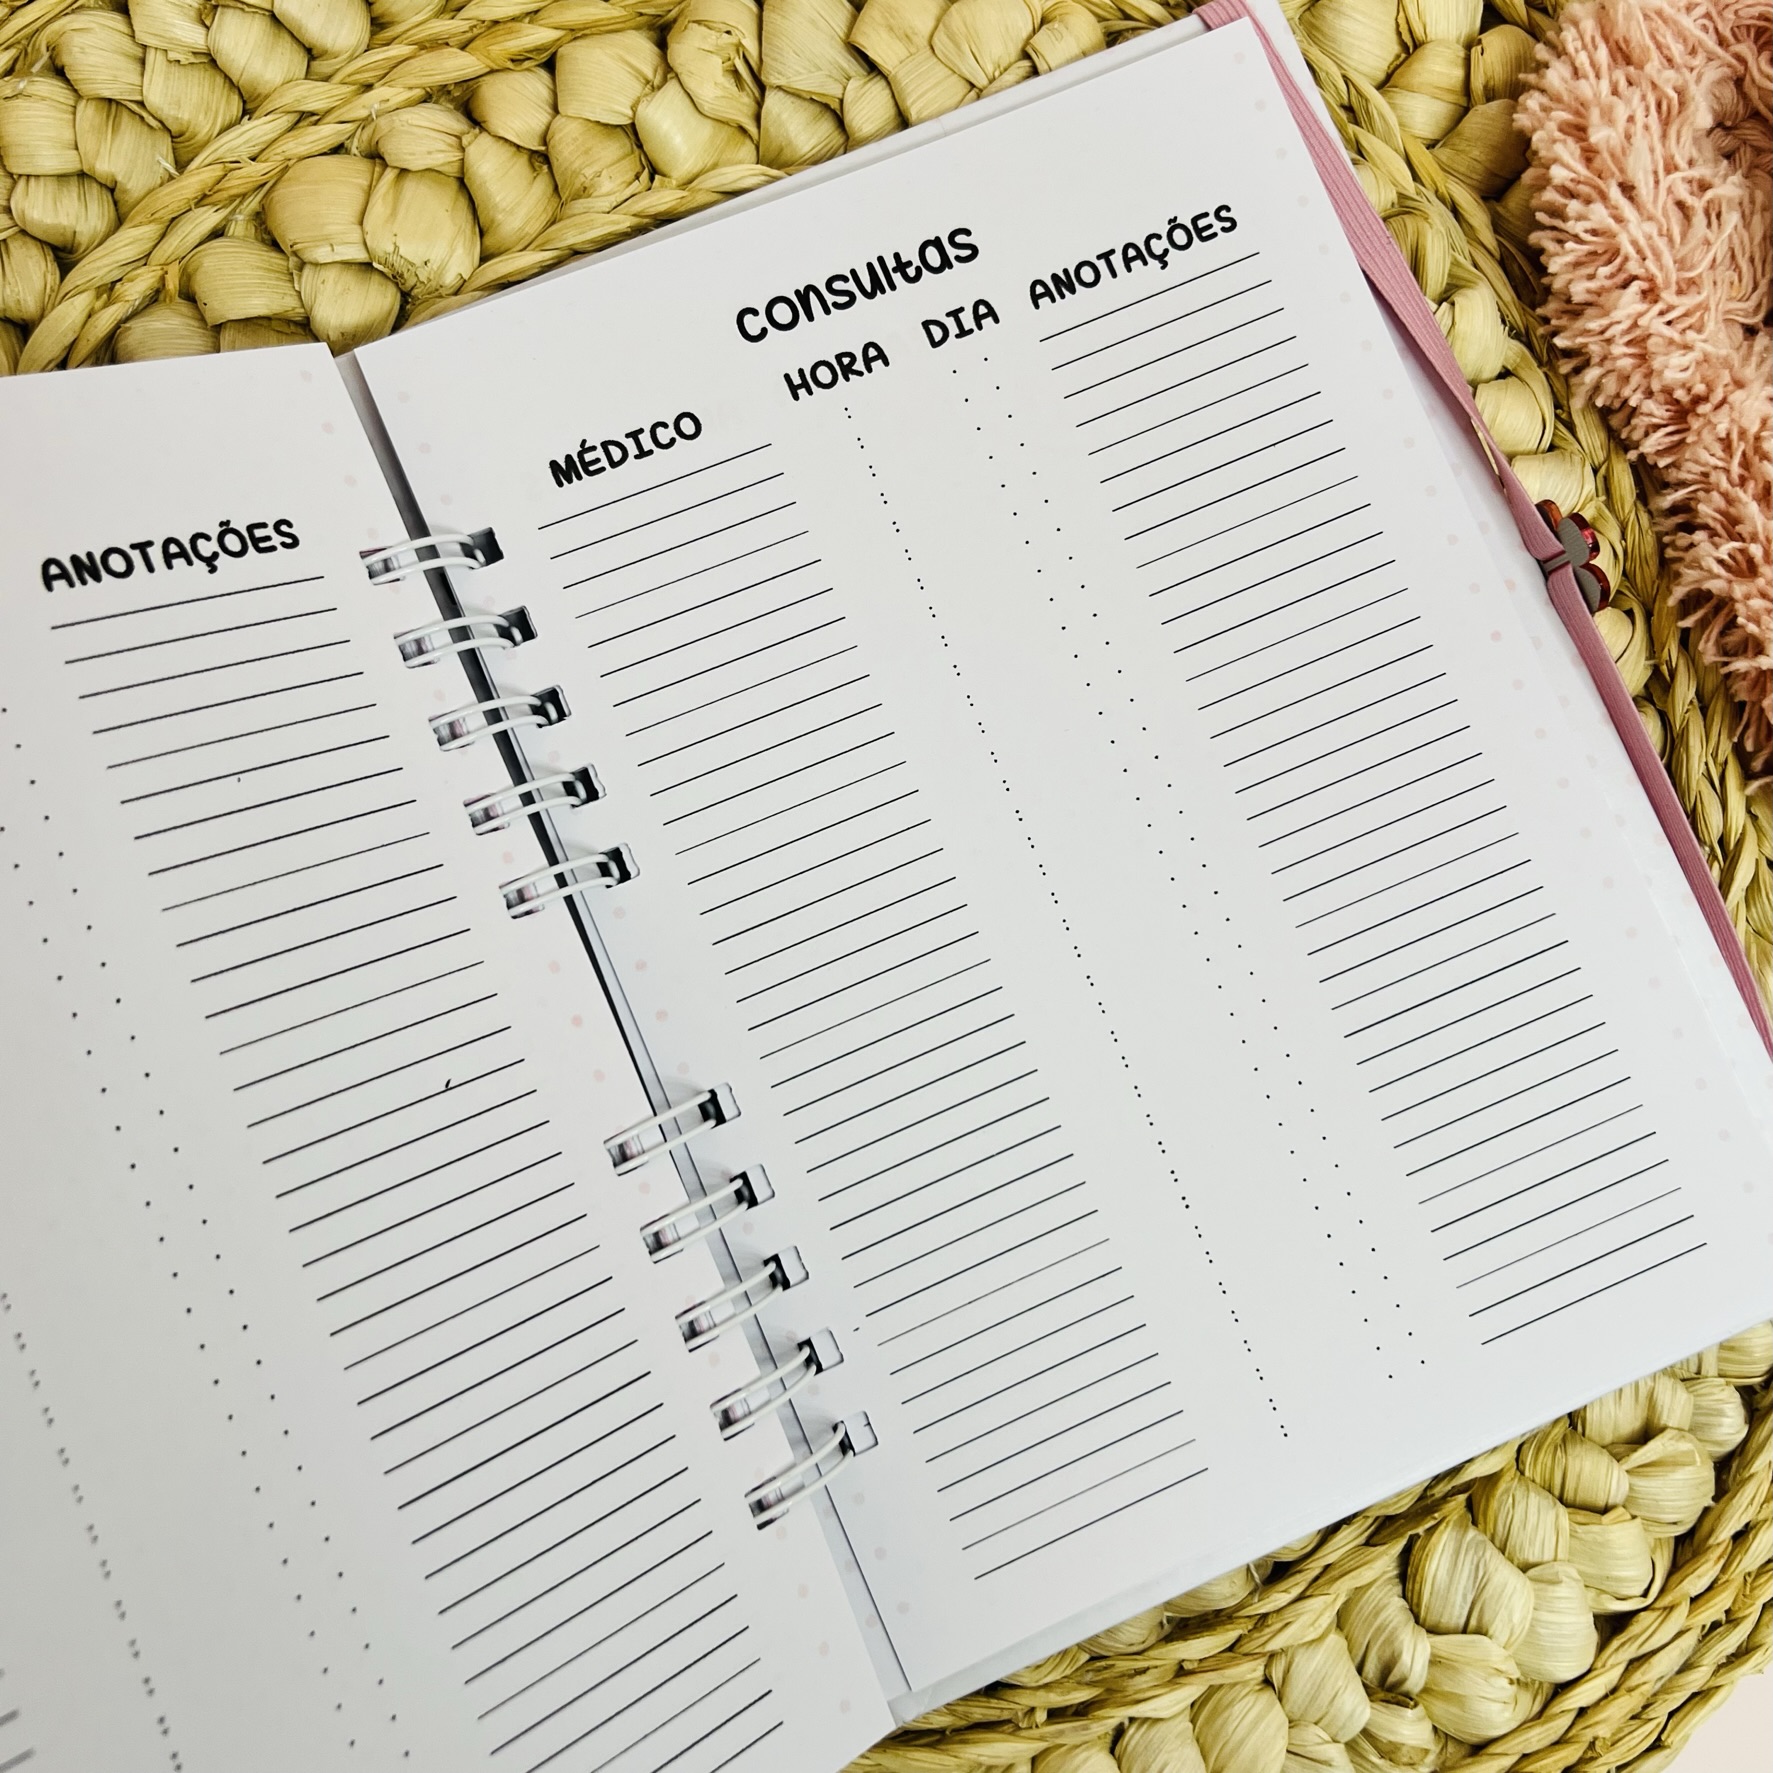 ANOTAÇÕES
consultas
MÉDICO HORA DIA ANOTAÇÕES